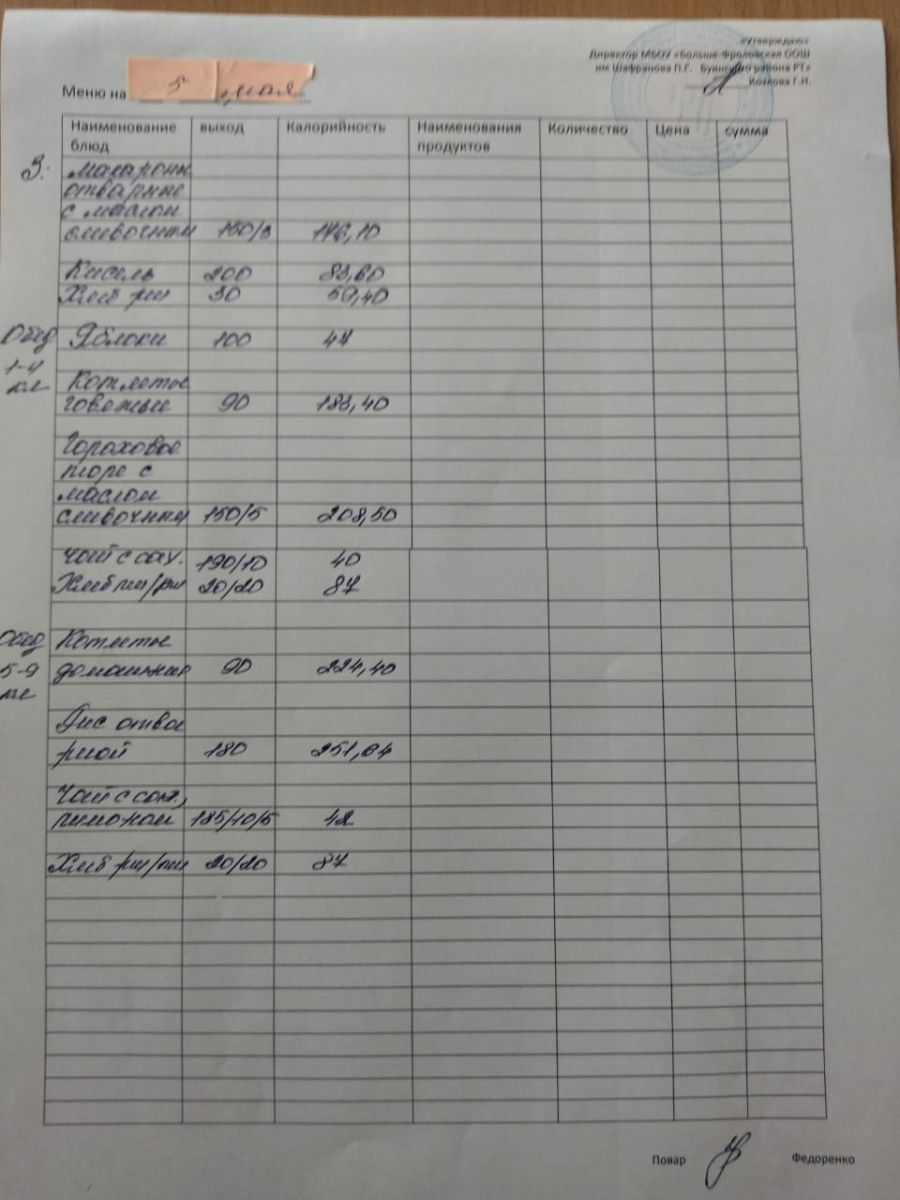 «Утверждаю»
Директор МБОУ «Больше-Фроловская ООШ
им Шафранова П.Г. Буинского района РТ»
Козлова Г.Н.
Меню на 5 мая
Наименование блюд выход Калорийность Наименования продуктов Количество Цена сумма
З. Макароны
отварные
с маслом
сливочным 150/3
Кисель 200 83,60
Хлеб рж 30 59,40
Обед Яблоки 100 47
1-4
кл Котлеты
говяжьи 90 183,40
Гороховое
пюре с
маслом
сливочным 150/5 208,50
Чай с сах. 190/10 40
Хлеб пш/рж 20/20 87
Обед Котлеты
5-9 домашние 90 224,40
кл
Рис отва
рной 180 251,64
Чай с сах.,
лимоном 42
Хлеб рж/пш 20/20 87
Повар Федоренко